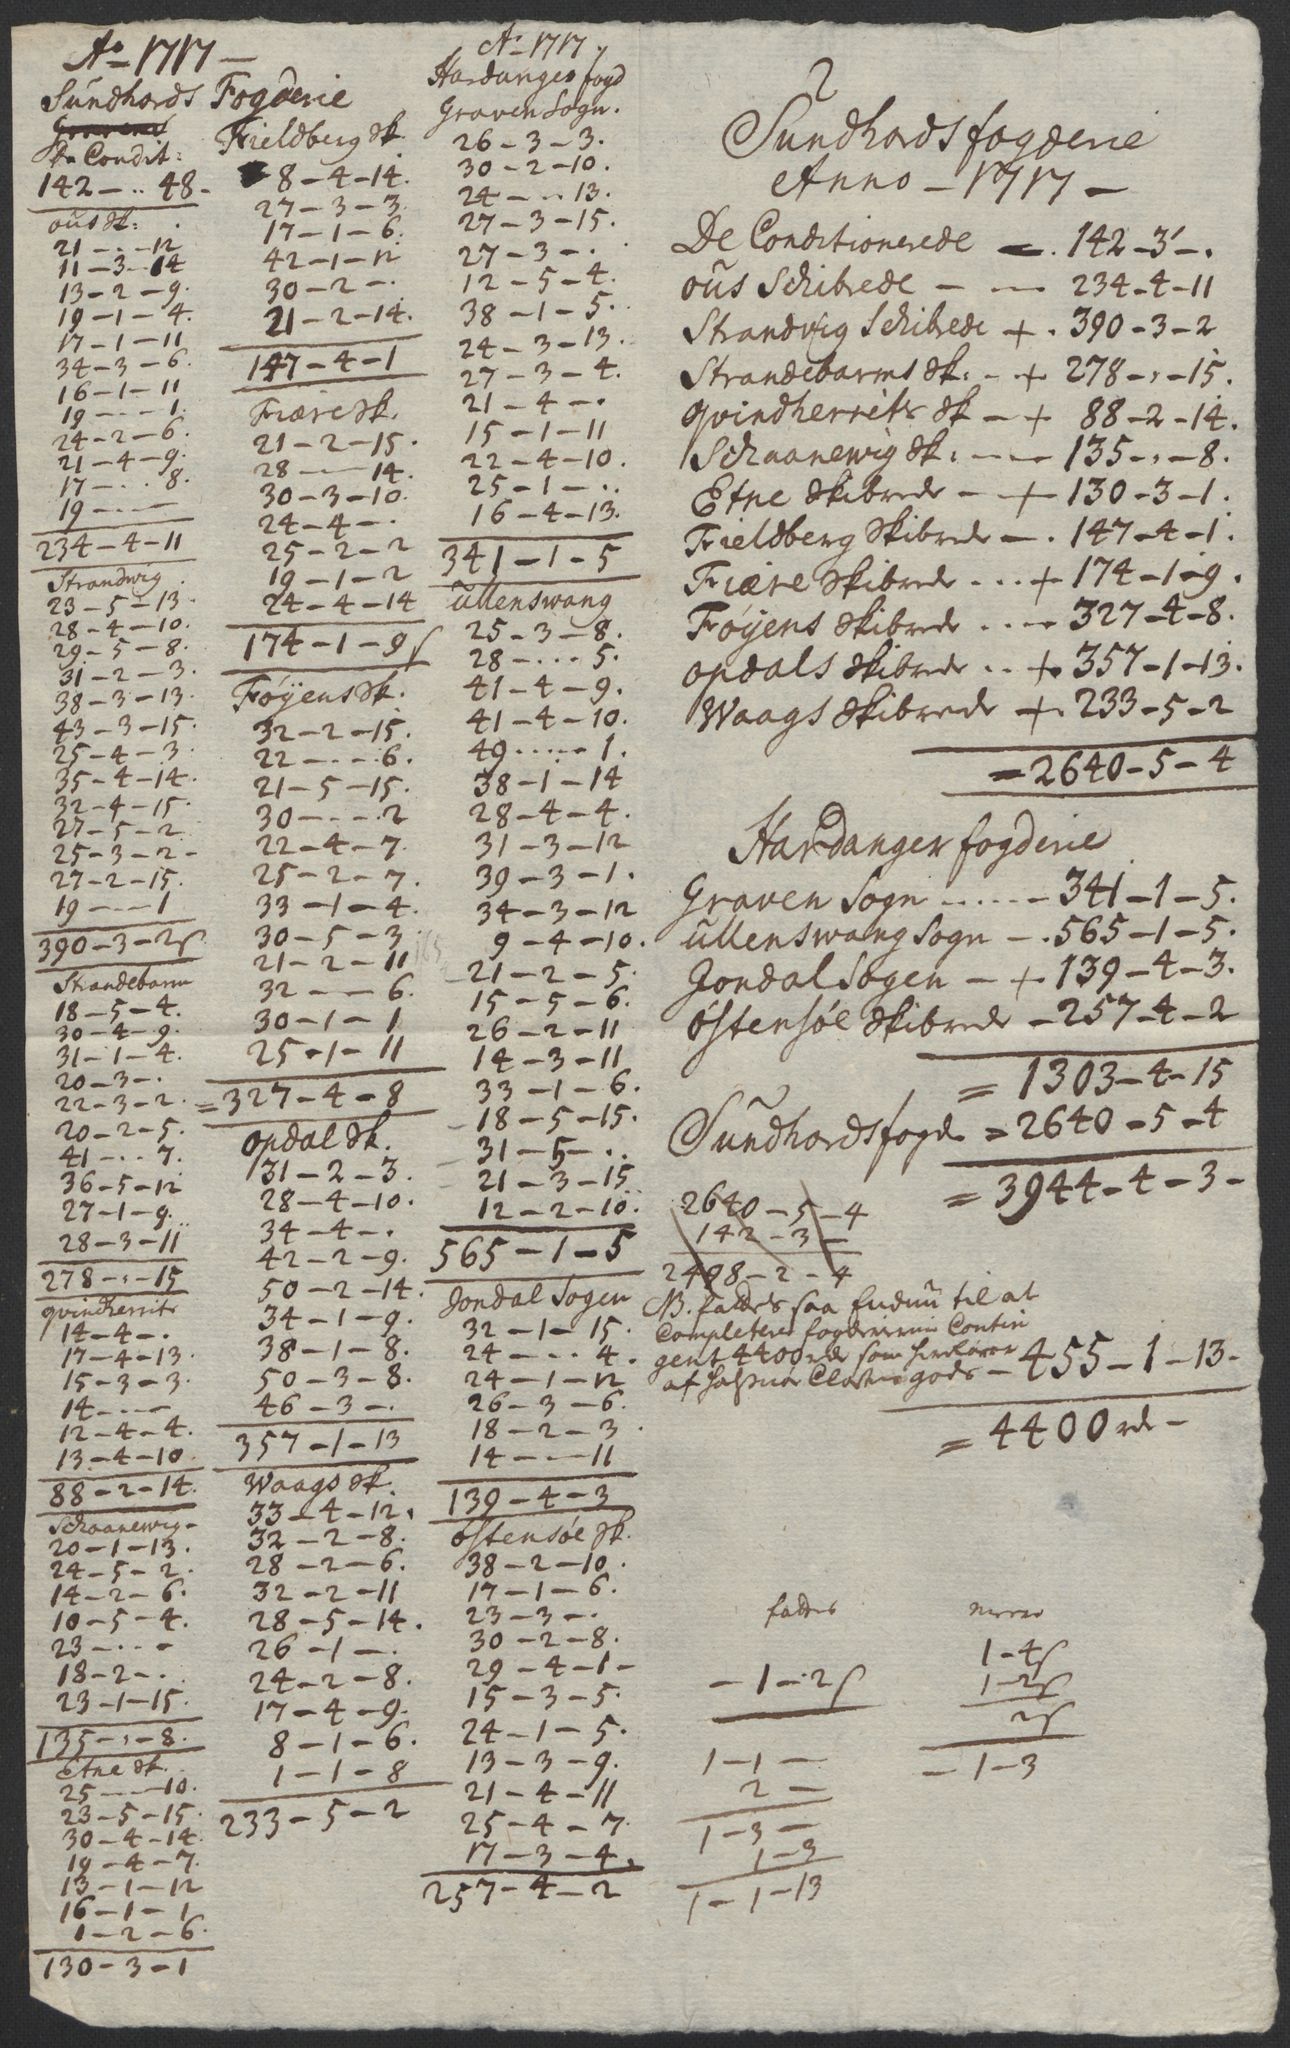 Ao 1717 —
Sundhords Fogderie
De Condit:
142 — .. 48 -
ous sk:
21 — .. — 12
11 — 3 — 14
13 — 2 — 9.
19 — 1 — 4.
17 — 1 — 11
34 — 3 — 6.
16 — 1 — 11
19 — .. — 1.
24 — 2 — 6.
21 — 4 — 9.
17 — .. 8.
19 — .. —
234 — 4 — 11
Strandwig
23 — 5 — 13.
28 — 4 — 10.
29 — 5 — 8.
31 — 2 — 3.
38 — 3 — 13.
43 — 3 — 15.
25 — 4 — 3.
35 — 4 — 14.
32 — 4 — 15.
27 — 5 — 2
25 — 3 — 2 -
27 — 2 — 15.
19 — .. — 1
390 — 3 — 2 s
Strandebarm
18 — 5 — 4.
30 — 4 — 9.
31 — 1 — 4.
20 — 3 — .
22 — 3 — 2.
20 — 2 — 5.
41 — .. 7.
36 — 5 — 12
27 — 1 — 9.
28 — 3 — 11
278 — .. — 15
qvindherrits
14 — 4 — .
17 — 4 — 13.
15 — 3 — 3.
14 — .. —
12 — 4 — 4.
13 — 4 — 10.
88 — 2 — 14.
Schaanewig -
20 — 1 — 13.
24 — 5 — 2.
14 — 2 — 6.
10 — 5 — 4.
23 — .. —
18 — 2 — .
23 — 1 — 15.
135 — .. — 8.
Etne sk.
25 — .. — 10.
23 — 5 — 15.
30 — 4 — 14.
19 — 4 — 7.
13 — 1 — 12
16 — 1 — 1
1 — 2 — 6.
130 — 3 — 1
Fieldberg sk.
8 — 4 — 14.
27 — 3 — 3.
17 — 1 — 6.
42 — 1 — 12
30 — 2 — .
21 — 2 — 14.
147 — 4 — 1
Fiære sk.
21 — 2 — 15.
28 — .. — 14.
30 — 3 — 10.
24 — 4 — .
25 — 2 — 2
19 — 1 — 2
24 — 4 — 14
174 — 1 — 9 s
Føyens sk.
32 — 2 — 15.
22 — .. — 6.
21 — 5 — 15.
30 — .. — 2
22 — 4 — 7.
25 — 2 — 7.
33 — 1 — 4.
30 — 5 — 3.
21 — 2 — 11
32 — .. — 6.
30 — 1 — 1
25 — 1 — 11
= 327 — 4 — 8
opdal sk.
31 — 2 — 3.
28 — 4 — 10.
34 — 4 — .
42 — 2 — 9.
50 — 2 — 14.
34 — 1 — 9.
38 — 1 — 8.
50 — 3 — 8.
46 — 3 — .
357 — 1 — 13
Waags sk.
33 — 4 — 12.
32 — 2 — 8.
28 — 2 — 6.
32 — 2 — 11
28 — 5 — 14.
26 — 1 — .
24 — 2 — 8.
17 — 4 — 9.
8 — 1 — 6.
1 — 1 — 8
233 — 5 — 2
Ao 1717.
Hardanger fogd
Graven Sogn.
26 — 3 — 3.
30 — 2 — 10.
24 — .. 13.
27 — 3 — 15.
27 — 3 — .
12 — 5 — 4.
38 — 1 — 5.
24 — 3 — 13.
27 — 3 — 4.
21 — 4 — .
15 — 1 — 11
22 — 4 — 10.
25 — 1 — ..
16 — 4 — 13.
341 — 1 — 5
Ullenswang
25 — 3 — 8.
28 — ... 5.
41 — 4 — 9.
41 — 4 — 10.
49 — .. — 1.
38 — 1 — 14
28 — 4 — 4.
31 — 3 — 12
39 — 3 — 1.
34 — 3 — 12
9 — 4 — 10.
21 — 2 — 5.
15 — 5 — 6.
26 — 2 — 11
14 — 3 — 11
33 — 1 — 6.
18 — 5 — 15.
31 — 5 — ..
21 — 3 — 15
12 — 2 — 10.
565 — 1 — 5
Jondal Sogen
32 — 1 — 15.
24 — .. 4.
24 — 1 — 12
26 — 3 — 6.
18 — 2 — 3
14 — .. — 11
139 — 4 — 3
Østensøe sk.
38 — 2 — 10.
17 — 1 — 6.
23 — 3 — .
30 — 2 — 8.
29 — 4 — 1 -
15 — 3 — 5.
24 — 1 — 5.
13 — 3 — 9.
21 — 4 — 11
25 — 4 — 7.
17 — 3 — 4.
257 — 4 — 2
Sundhords fogderie
Anno — 1717 —
De Conditionerede — . 142 — 3 — .
ous Schibrede — — 234 — 4 — 11
Strandvig Schibrede + . 390 — 3 — 2
Strandebarms sk: — + 278 — .. — 15.
qvindherrits sk — + 88 — 2 — 14.
Schaanewig sk: — — 135 — .. — 8.
Etne skibrede — + 130 — 3 — 1.
Fieldberg skibrede — . 147 — 4 — 1.
Fiære skibrede ... + 174 — 1 — 9.
Føyens skibrede .... 327 — 4 — 8.
opdals skibrede .. + 357 — 1 — 13.
Waags skibrede + 233 — 5 — 2
= 2640 — 5 — 4
Hardanger fogderie
Graven Sogn ..... 341 — 1 — 5.
Ullenswang Sogn — . 565 — 1 — 5.
Jondal Sogen — + 139 — 4 — 3.
Østensøe skibrede — 257 — 4 — 2
= 1303 — 4 — 15
Sundhords fogd. = 2640 — 5 — 4
= 3944 — 4 — 3 —
2640 — 5 — 4
142 — 3 —
2498 — 2 — 4
NB. fattes saa endnu til at
Completere fogderiernis Contin
gent 4400 rdr som
af Halsnøe Closters gods — 455 — 1 — 13 -
= 4400 rdr —
fattes
— 1 — 2 s
1 — 1 —
2 —
1 — 3 —
1 — 3
1 — 1 — 13
meere
1 — 4 s
1 — 2 s
2 s
— 1 — 3